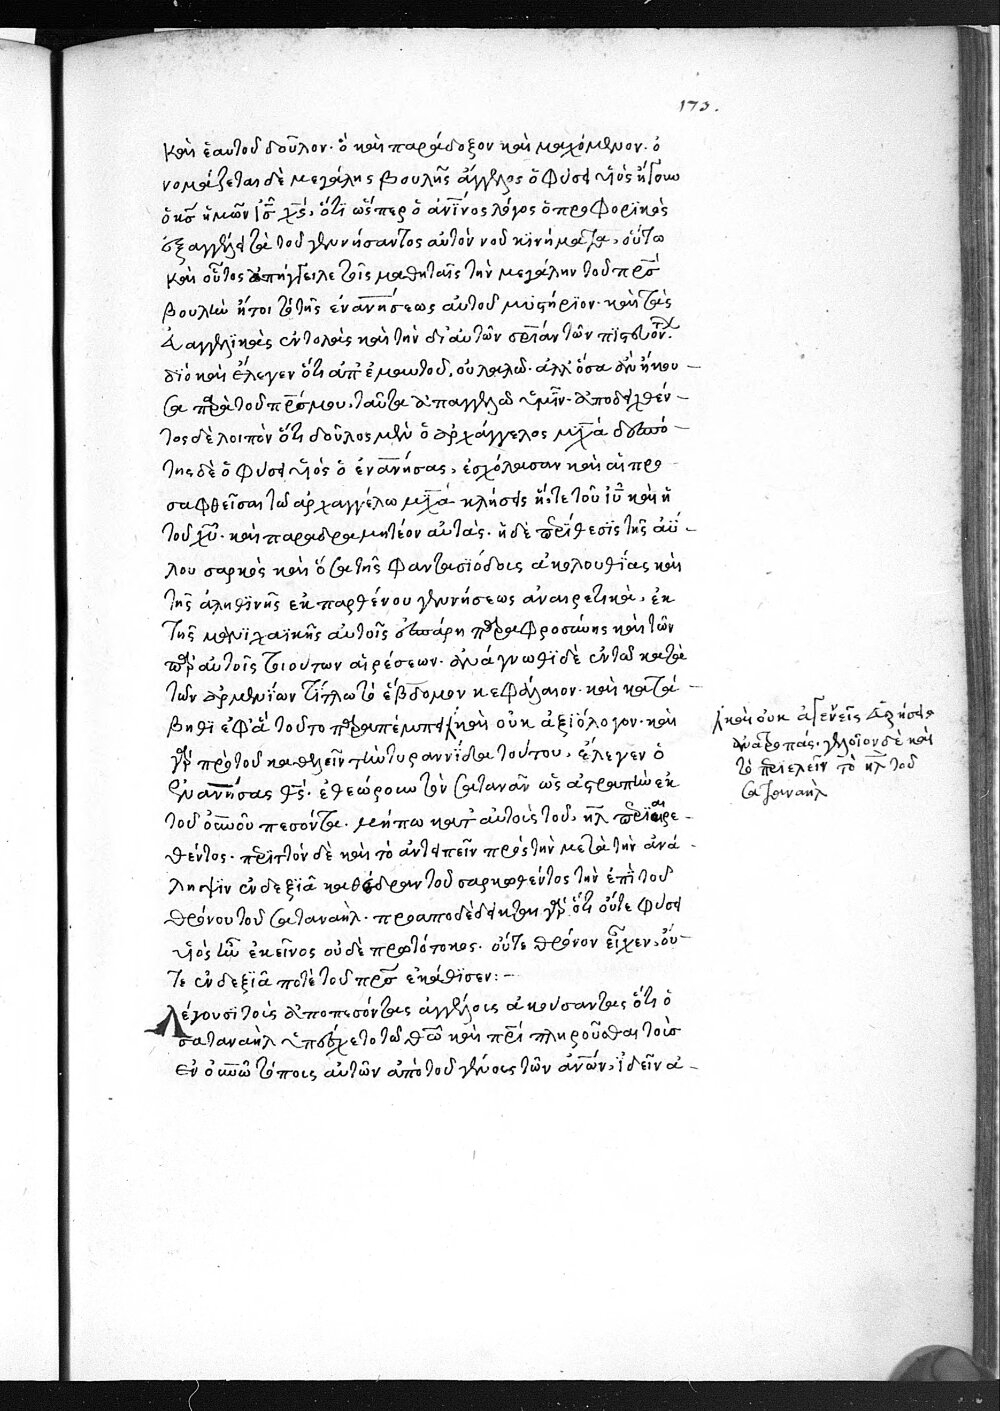 173.
καὶ ἑαυτοῦ δοῦλον· ὃ καὶ παράδοξον καὶ μαχόμενον· ὀ
νομάζεται δὲ μεγάλης βουλῆς ἄγγελος ὁ φύσει υἱὸς ἤγουν
ὁ κς ἡμῶν ις χς, ὅτι ὥσπερ ὁ ἀνινος λόγος ὁ προφορικὸς
ἐξαγγέλλει τὰ τοῦ γεννήσαντος αὐτὸν νοῦ κινήματα, οὕτω
καὶ οὗτος ἀπήγγειλε τοῖς μαθηταῖς τὴν μεγάλην τοῦ πρς
βουλὴν ἤτοι τὸ τῆς ἐνανήσεως αὐτοῦ μυστήριον· καὶ τὰς
εὐαγγελικὰς ἐντολὰς καὶ τὴν δι' αὐτῶν σρίαν τῶν πιστευόντ.
διὸ καὶ ἔλεγεν ὅτι ἀπ' ἐμαυτοῦ, οὐ λαλῶ· ἀλλ' ὅσα ἂν ἤκου
σα παρὰ τοῦ πρς μου, ταῦτα ἀπαγγελῶ ὑμῖν· ἀποδειχθέν
τος δὲ λοιπὸν ὅτι δοῦλος μὲν ὁ ἀρχάγγελος μιχα δεσπό
της δὲ ὁ φύσει υἱὸς ὁ ἐνανήσας, ἐσχόλασαν καὶ αἱ προ
σαφθεῖσαι τῶ ἀρχαγγέλω μιχα κλήσεις ἥ, τε τοῦ ιυ καὶ ἡ
τοῦ χυ· καὶ παραδραμητέον αὐτάς· ἡ δὲ περίθεσις τῆς ἀΰ
λου σαρκὸς καὶ ὅσα τῆς φαντασιώδους ἀκολουθίας καὶ
τῆς ἀληθινῆς ἐκ παρθένου γεννήσεως ἀναιρετικὰ, ἐκ
τῆς μανιχαϊκῆς αὐτοῖς ἐσπάρη παραφροσύνης καὶ τῶν
παρ' αὐτοῖς τοιούτων αἱρέσεων· ἀνάγνωθι δὲ ἐν τῶ κατὰ
τῶν ἀρμενίων τίτλω τὸ ἕβδομον κεφάλαιον· καὶ κατά
βηθι ἐφ' ἃ τοῦτο παραπέμπει καὶ οὐκ ἀξιόλογον· καὶ
γὰρ πρὸ τοῦ καθελεῖν τὴν τυραννίδα τούτου, ἔλεγεν ὁ
ἐνανήσας θς· ἐθεώρουν τὸν σατανᾶν ὡς ἀστραπὴν ἐκ
τοῦ οὐνοῦ πεσόντα· μήπω κατ' αὐτοὺς τοῦ, ηλ περιαιρε
θέντος· περιττὸν δὲ καὶ τὸ ἀντειπεῖν πρὸς τὴν μετὰ τὴν ἀνά
ληψιν ἐν δεξιᾶ καθέδραν τοῦ σαρκωθέντος τὴν ἐπὶ τοῦ
θρόνου τοῦ σαταναὴλ· προαποδέδεικται γὰρ ὅτι οὔτε φύσει
υἱὸς ἦν ἐκεῖνος οὐδὲ πρωτότοκος· οὔτε θρόνον εἶχεν, οὔ
τε ἐν δεξιᾶ ποτὲ τοῦ πρς ἐκάθισεν:
Λέγουσι τοὺς ἀποπεσόντας ἀγγέλους ἀκούσαντας ὅτι ὁ
σαταναὴλ ὑπέσχετο τῶ θῶ καὶ πρὶ πληροῦσθαι τοὺς
ἐν οὐνῶ τόπους αὐτῶν ἀπὸ τοῦ γένους τῶν ἀνων, ἰδεῖν ἀ
καὶ οὐκ ἀγενεῖς
ἀνατροπάς· γελοῖον δὲ καὶ
τὸ περιελεῖν τὸ ηλ τοῦ
σαταναὴλ